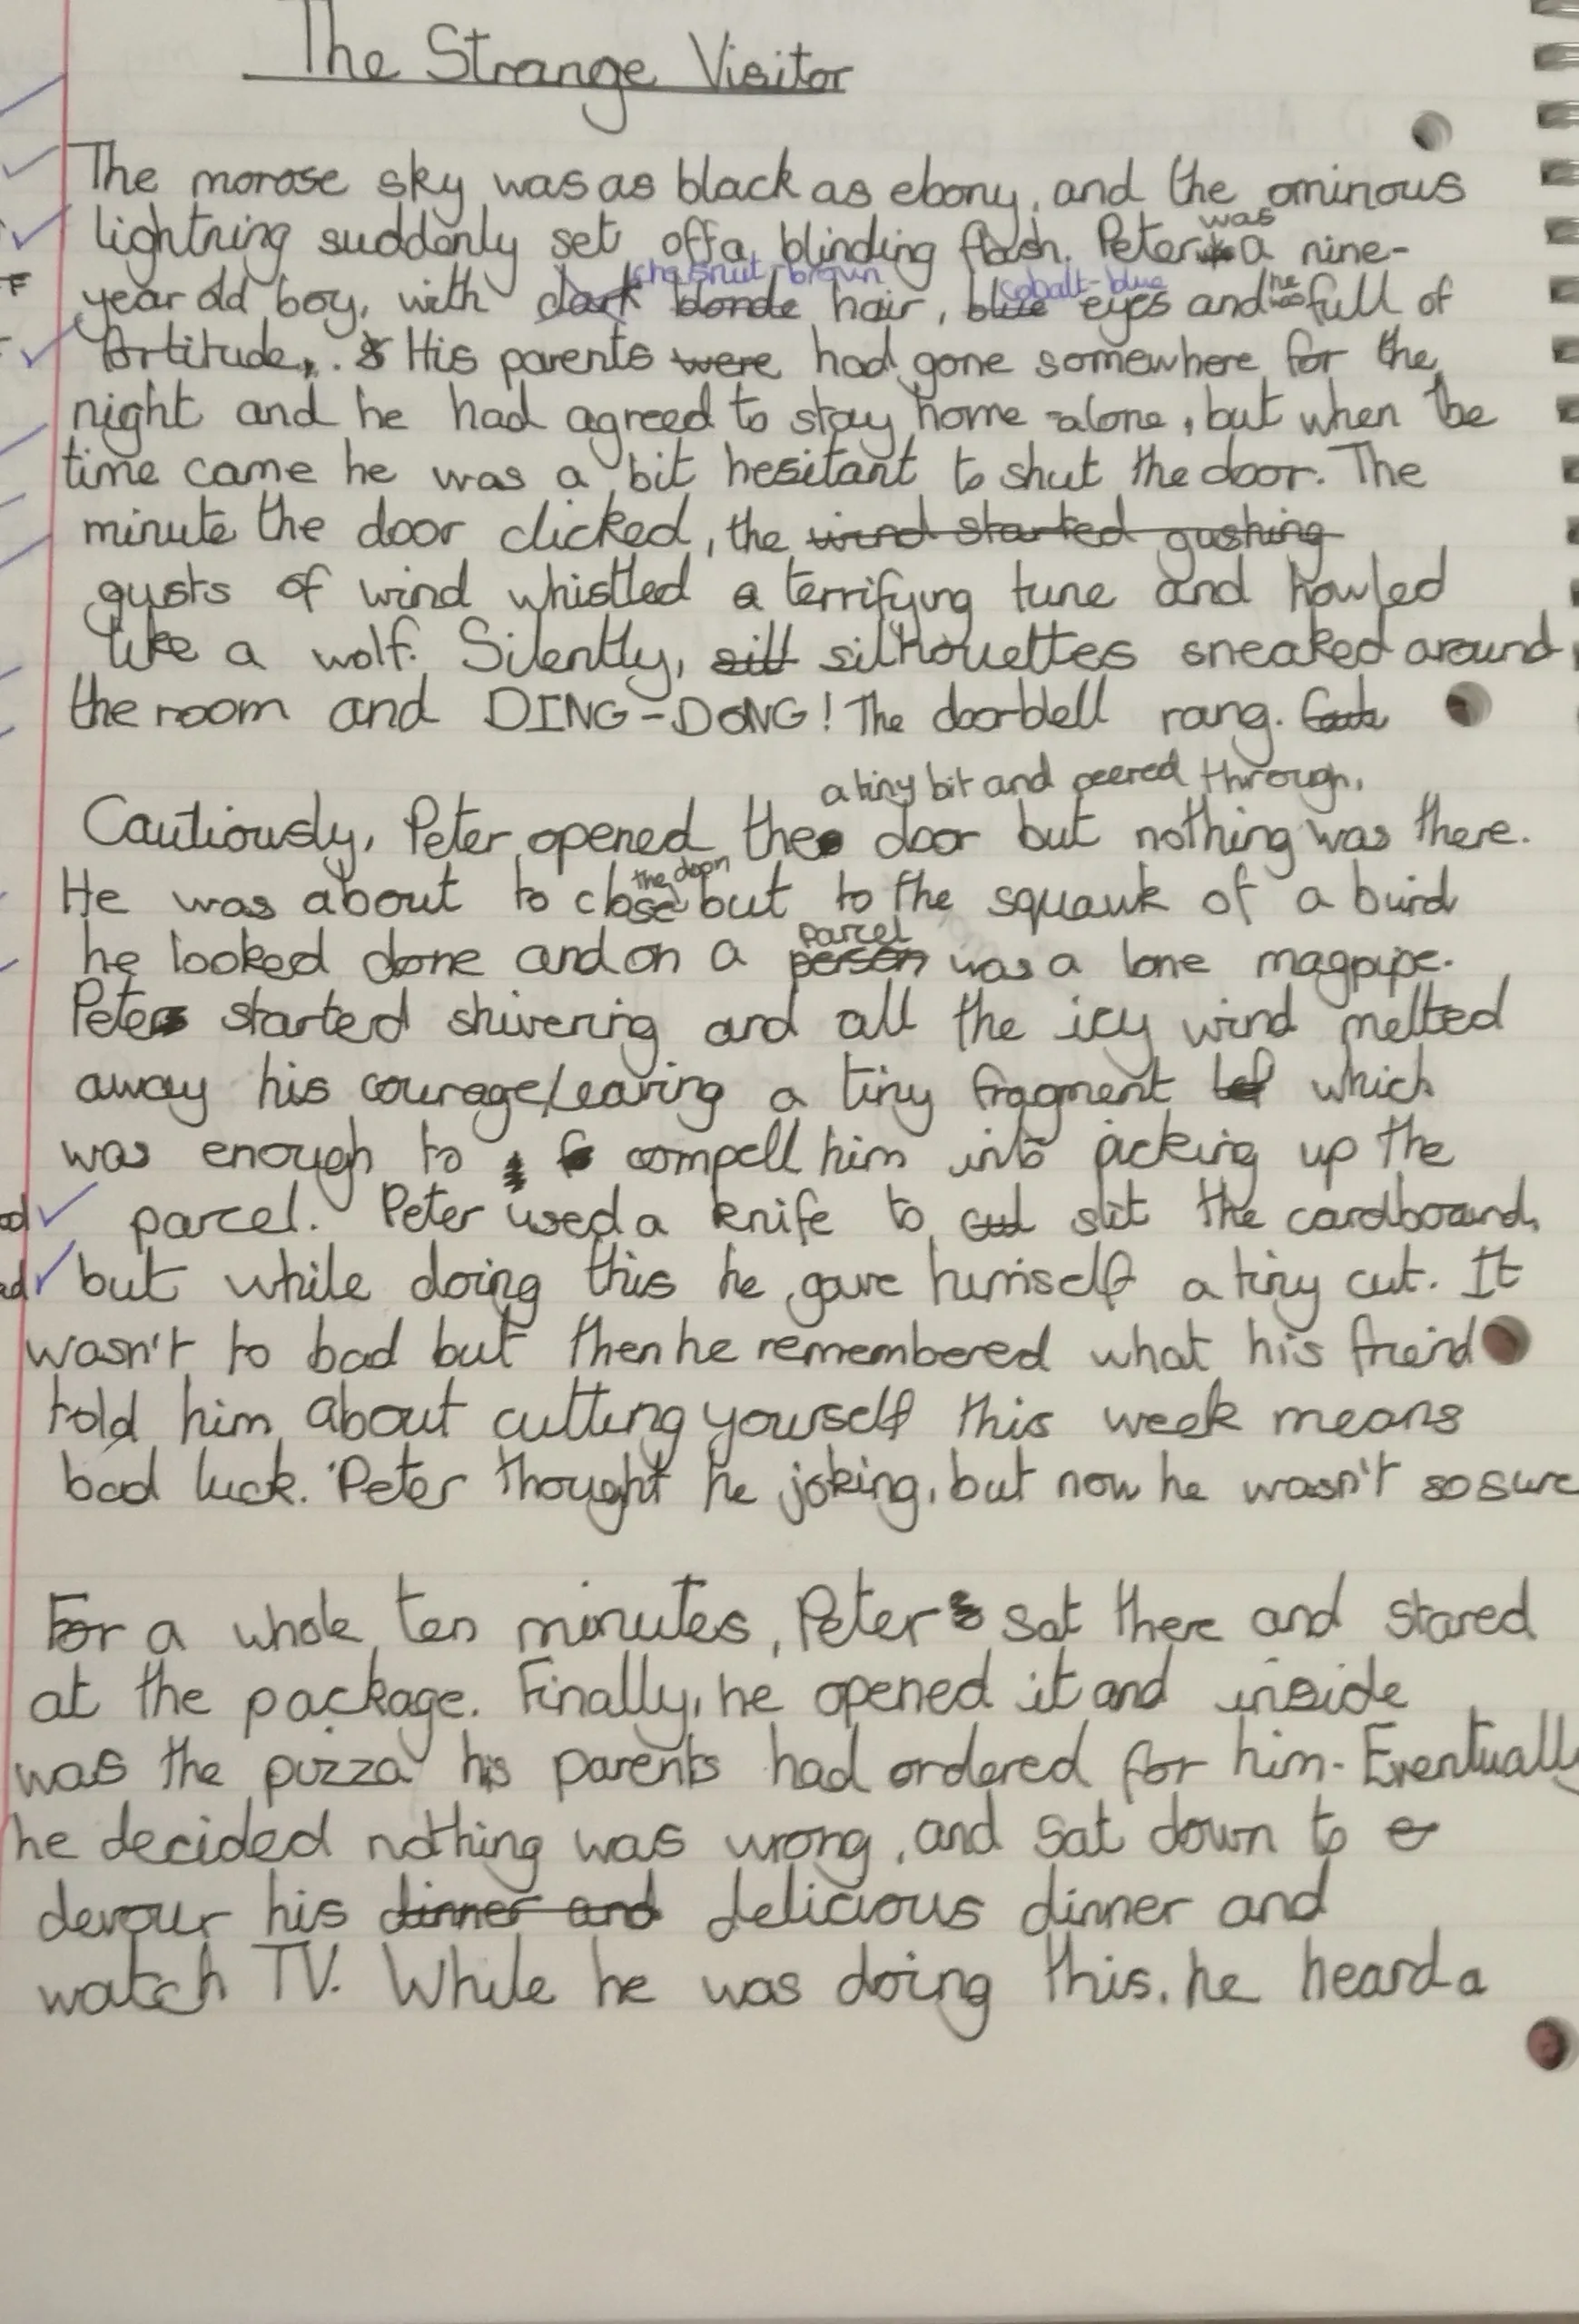 The Strange Visitor
The morose sky was as black as ebony, and the ominous
lightning suddenly set off a blinding flash. Peter was a nine-
year old boy, with chestnut-brown hair, cobalt-blue eyes and he was full of
fortitude. His parents had gone somewhere for the
night and he had agreed to stay home alone, but when the
time came he was a bit hesitant to shut the door. The
minute the door clicked, the wind started gushing
gusts of wind whistled a terrifying tune and howled
like a wolf. Silently, sill silhouettes sneaked around
the room and DING-DONG! The doorbell rang.
a tiny bit and peered through,
Cautiously, Peter opened the door but nothing was there.
He was about to close the door but to the squawk of a burid
he looked done and on a parcel was a lone magpipe.
Peter started shivering and all the icy wind melted
away his courage, leaving a tiny fragment which
was enough to compell him into picking up the
parcel. Peter used a knife to cut slit the cardboard,
but while doing this he gave himself a tiny cut. It
wasn't to bad but then he remembered what his freind
told him about cutting yourself this week means
bad luck. Peter thought he joking, but now he wasn't so sure
For a whole ten minutes, Peter sat there and stared
at the package. Finally, he opened it and inside
was the pizza his parents had ordered for him. Eventually
he decided nothing was wrong, and sat down to
devour his dinner and delicious dinner and
watch TV. While he was doing this, he heard a